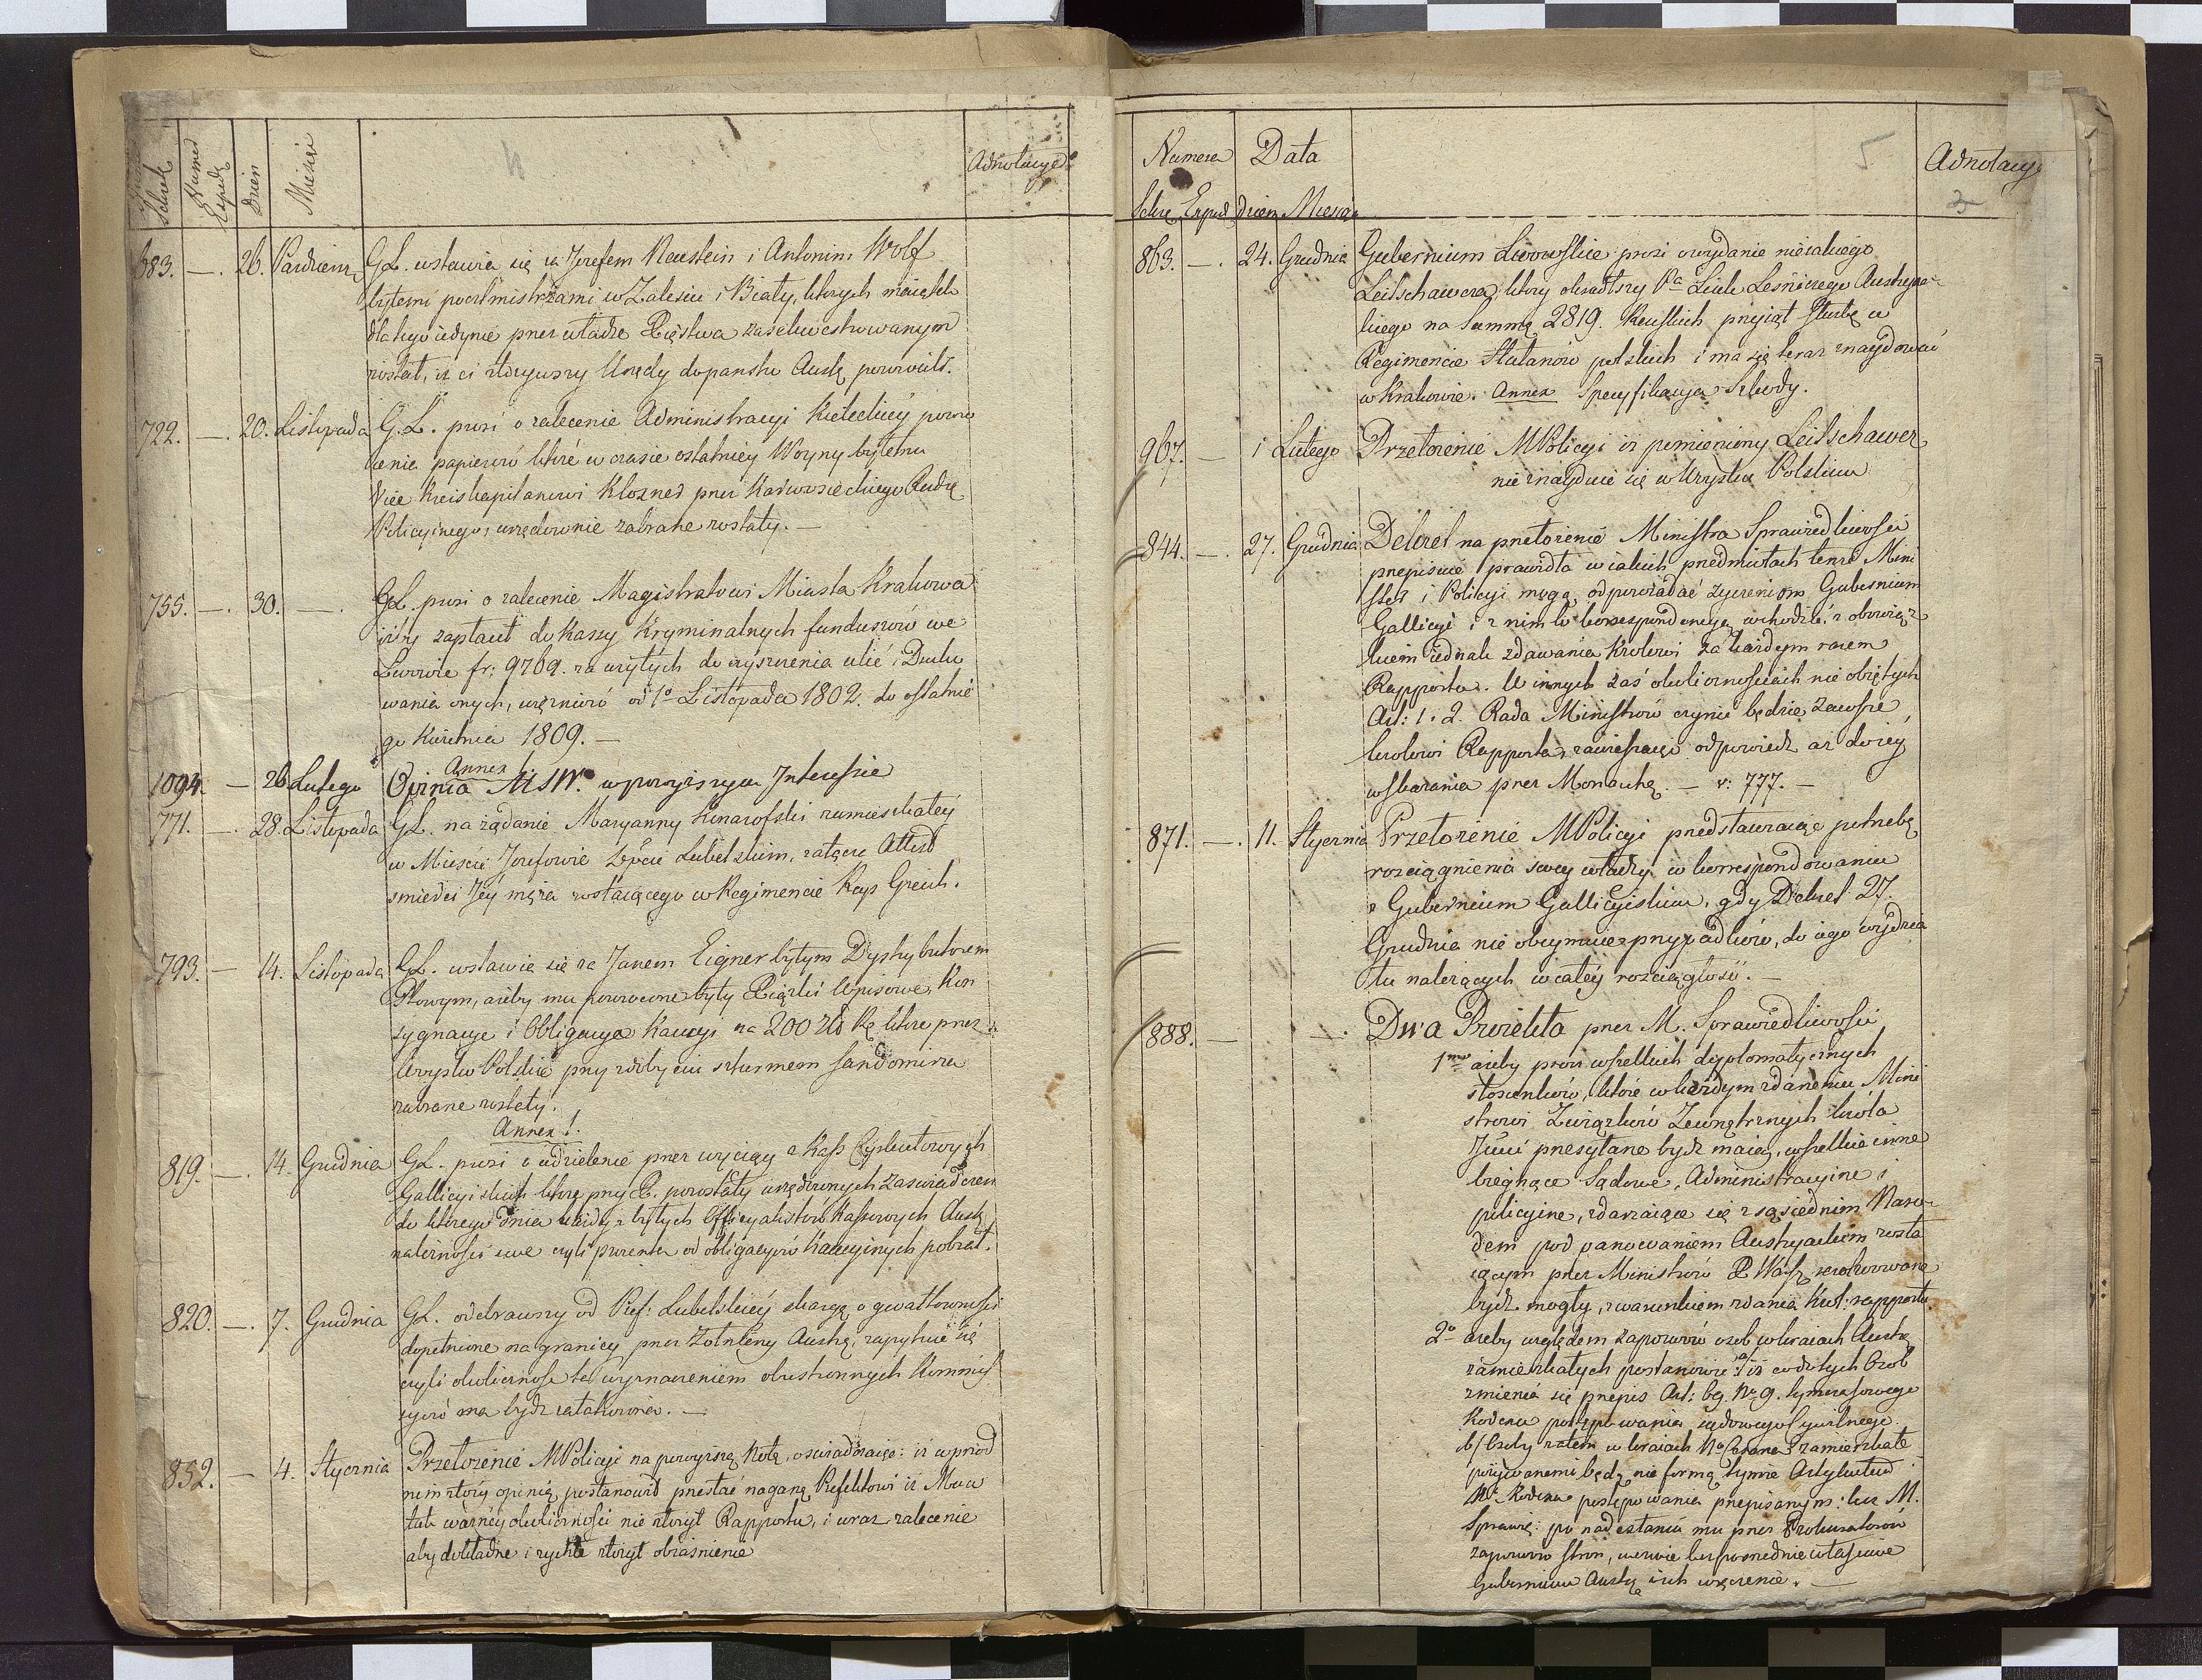 Numer Sekret
Numer Exped
Dzien
Miesiąc
Adnotacye
683. — . 26. Pazdziern. GL. wstawia się za Jozefem Neustein i Antonim Wolf
byłemi pocztmistrzami w Zalesiu i Biały, ktorych maiątek
dla tego iedynie przez władze Xięstwa zasekwestrowanym
został, iż ci złożywszy Urzędy do panstw Austr. powrocili.
722. — . 20. Listopada G.L. prosi o zalecenie Administracyi Kieleckiey powro
cenia papierow które w czasie ostatniey Woyny byłemu
Vice Kreiskapitanowi Klosner przez Karwosieckiego Audy.
Policyinego, urzędownie zabrane zostały. —
755. — . 30. — . GL. prosi o zalecenie Magistratowi Miasta Krakowa
iżby zapłacił do Kassy Kryminalnych funduszow we
Lwowie fr: 9769. za użytych do czyszczenia ulic i Bruku
wania onych, więzniow od 1o Listopada 1802. do ostatnie
go Kwietnia 1809. —
Annex
1094. — 26 Lutego Opinia MSW. w powyższym Interessie
771. — . 28. Listopada GL. na żądanie Maryanny Kunarofski zamieszkałey
w Miescie Jozefowie Dppcie Lubelskim, załącza Attest
smierci Jey męża zostaiącego w Regimencie Reys Greich.
793. — 14. Listopada GL. wstawia się za Janem Eigner byłym Dystrybutorem
Płowym, ażeby mu powrocone były Xiążki Wpisowe, Kon
sygnacye i Obligacya Kaucyi na 200 Zło Rę które przez
Woysko Polskie przy zdobyciu szturmem Sandomirza
zabrane zostały.
Annex 1.
819. — . 14. Grudnia GL. prosi o udzielenie przez wyciągi z Kass Cyrkułowych
Gallicyiskich które przy X. pozostały urzędownych zaswiadczen
do ktorego dnia każdy z byłych Officyalistow Kassowych Austr
należnosci swe czyli procenta od obligacyow Kaucyinych pobrał.
820. — . 7. Grudnia GL. odebrawszy od Pref: Lubelskiey skargę o gwałtownosci
dopełnione na granicy przez Zołnierzy Austr. zapytuie się
czyli okolicznosc ta wyznaczeniem obustronnych Kommis
syow ma bydz załatwiona. —
852. — 4. Stycznia Przełożenie MPolicyi na powyższą Notę, oswiadczaiąc: iż wprzod
nim swoią opinią postanowił przesłać naganę Prefektowi iż Mu o
tak ważney okolicznosci nie złożył Rapportu, i wraz zalecenie
aby dokładne i rychłe złożył obiasnienie
Numera Data
5
Adnotacye
2
Sekre Exped Dzien Miesiąc
863. — . 24. Grudnia Gubernium Lwowskie prosi o wydanie nieiakiego
Leitschawera, ktory okradłszy Pa Liele Lesniczego Austryac
kiego na Summę 2819. Reńskich przyiął służbę w
Regimencie Hułanow polskich i ma się teraz znaydować
w Krakowie. Annex Specyfikacya Szkody.
967. — 1 Lutego Przełożenie MPolicyi iż pomieniony Leitschawer
nie znayduie się w Woysku Polskim
844. — . 27. Grudnia Dekret na przełożenie Ministra Sprawiedliwosci
przepisuie prawidła w iakich przedmiotach tenże Mini
ster i Policyi mogą odpowiadać życzeniom Gubernium
Gallicyi i z nim w korrespondencyą wchodzić, z obowiąz
kiem iednak zdawania Krolowi za każdym razem
Rapportu. W innych zaś okolicznosciach nie obiętych
Art: 1. 2. Rada Ministrow czynić będzie zawsze
krolowi Rapporta, zawieszaiąc odpowiedz aż do iey
wskazania przez Monarchę. — v: 777. —
871. — . 11. Stycznia Przełożenie MPolicyi przedstawiaiące potrzebę
rozciągnienia swey władzy w korrespondowaniu
z Gubernium Gallicyiskim, gdy Dekret 27.
Grudnia nie obeymuie przypadkow, do iego wydzia
łu należących w całey rozciągłosci. —
888. — — . Dwa Proiekta przez M. Sprawiedliwosci
1mo ażeby procz wszelkich dyplomatycznych
stosunkow, które w każdym zdarzeniu Mini
strowi Związkow Zewnętrznych króla
Jmci przesyłane bydz maią, wszelkie inne
biegnące Sądowe, Administracyine i
policyine, zdarzaiące się z sąsiednim Naro
dem pod panowaniem Austryackiem zosta
iącym przez Ministrow X Warsz. zakomunikowane
bydz mogły, z warunkiem zdania Król: rapportu.
2o ażeby względem zapozwow osob w kraiach Austr.
zamieszkałych postanowić: a/ iż co do tych Osob
zmienia się przepis Art: 69. No 9. tymczasowego
Kodexu postępowania sądowego Cywilnego.
b/ Osoby zatem w kraiach No Cesarza zamieszkałe
pozywanemi będą nie formą tymże Artykułem
No Kodexu postępowania przepisanym: lecz M.
Sprawie: po nadesłaniu mu przez Prokuratorow
zapozwow stron, wezwie bezposrednie własciwe
Gubernium Austr. o ich wręczenie. —